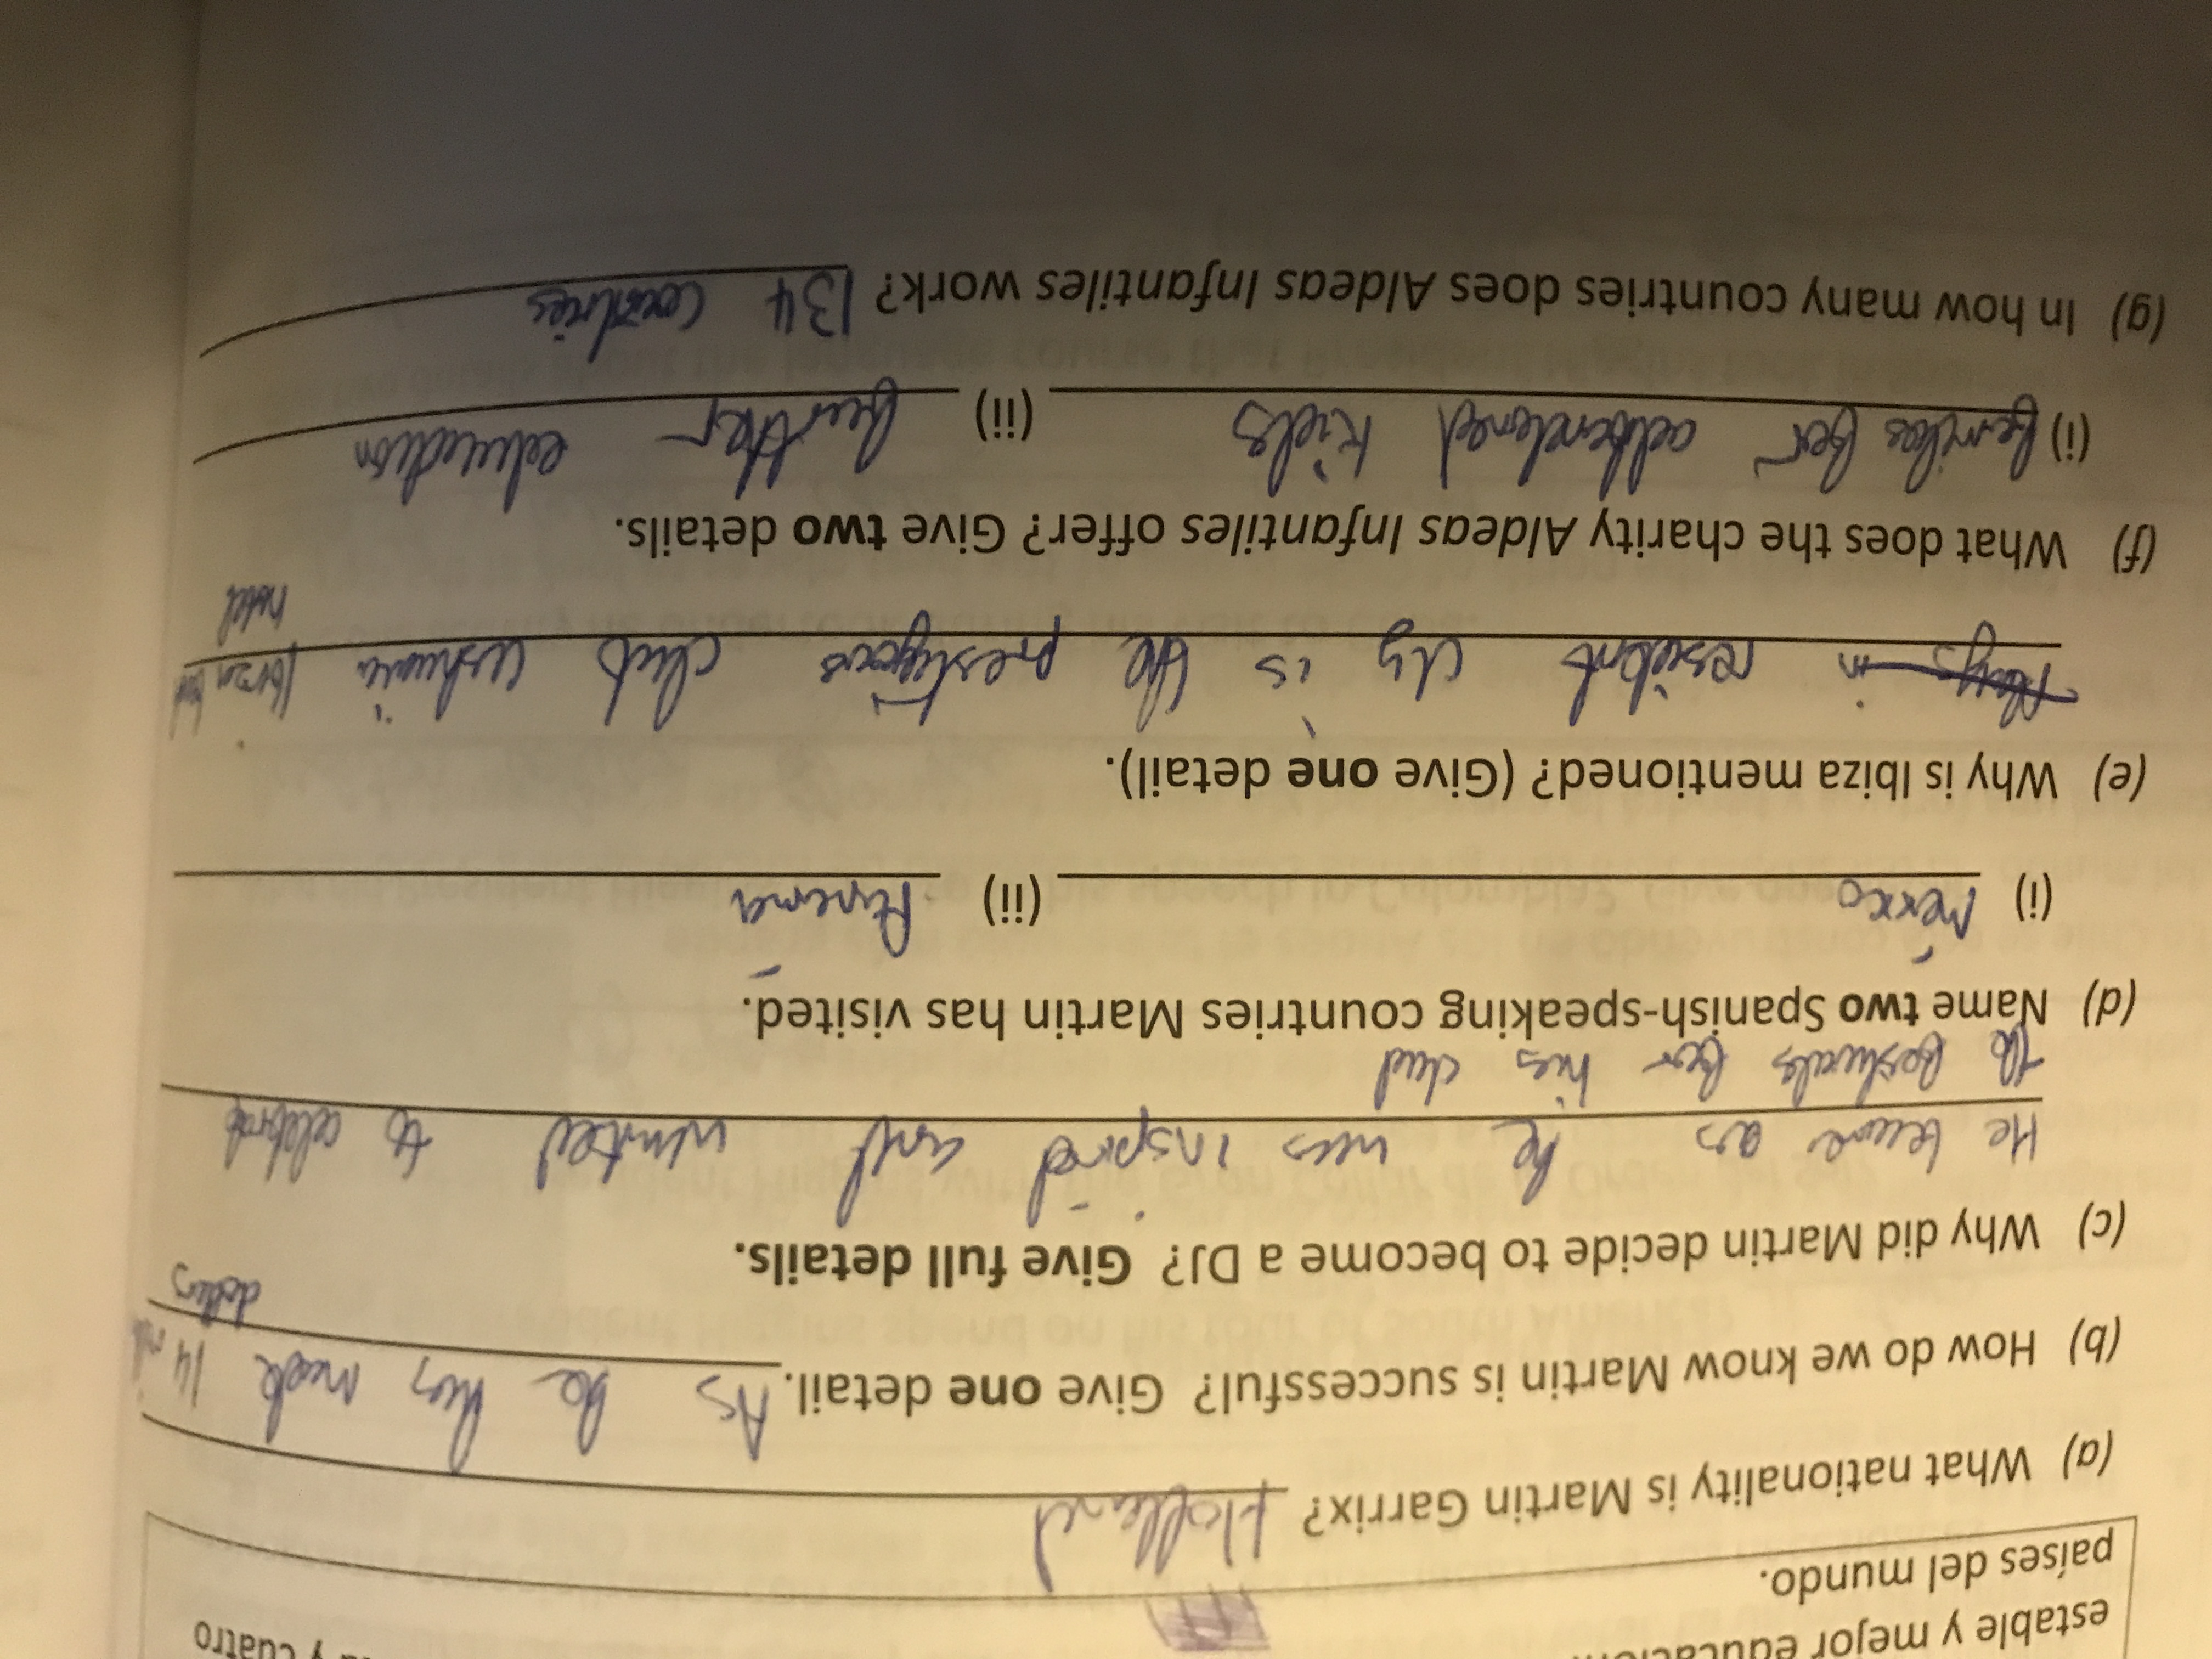 estable y mejor educación
y cuatro
países del mundo.
(a) What nationality is Martin Garrix? Holland
(b) How do we know Martin is successful? Give one detail. As he has made 14
dollars
(c) Why did Martin decide to become a DJ? Give full details.
He became as he was inspired and wanted to celebrate
the festivals for his dad
(d) Name two Spanish-speaking countries Martin has visited.
(i) México (ii) Panamá
(e) Why is Ibiza mentioned? (Give one detail).
Plays in resident dj is the prestigious club ushuaia Ibiza
hotel
(f) What does the charity Aldeas Infantiles offer? Give two details.
(i) families for adbandoned kids (ii) further education
(g) In how many countries does Aldeas Infantiles work? 134 countries